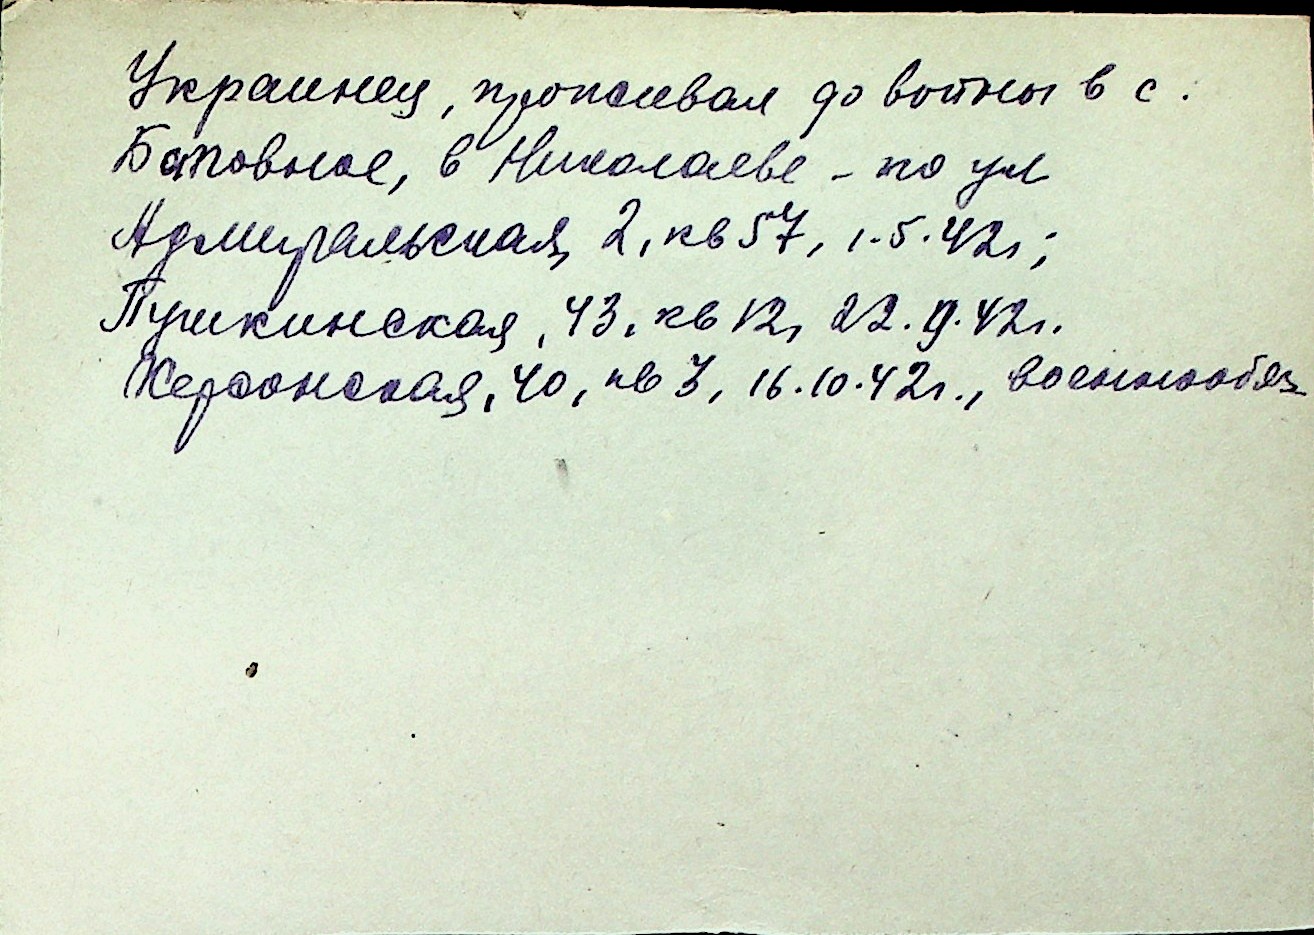 Украинец, проживал до войны в с.
Баловное, в Николаеве - по ул
Адмиральская, 2, кв 57, 1.5.42г;
Пушкинская, 43, кв 12, 22.9.42г.
Херсонская, 40, кв 3, 16.10.42г., военнообяз